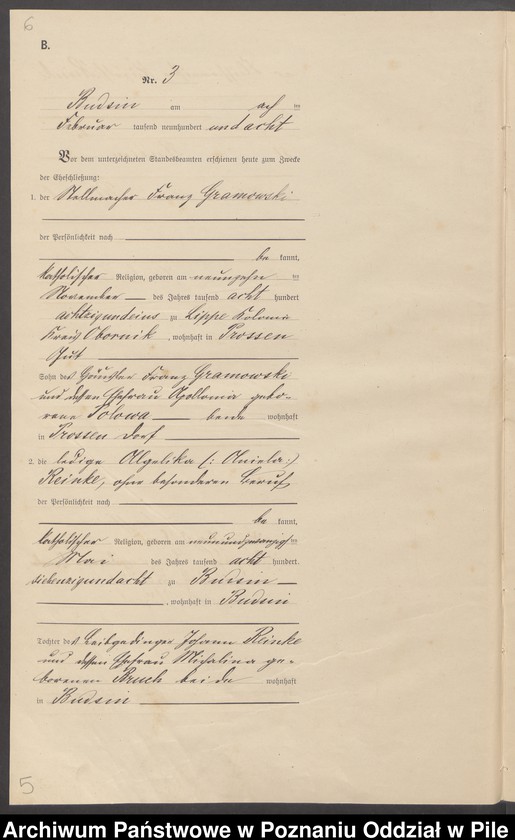 6
B.
Nr. 3
Budsin am acht ten
Februar tausend neunhundert und acht
Vor dem unterzeichneten Standesbeamten erschienen heute zum Zwecke
der Eheschließung:
1. der Stellmacher Franz Gramowski
der Persönlichkeit nach
be kannt,
katholischer Religion, geboren am neunzehn ten
November des Jahres tausend acht hundert
achtzigundeins zu Lippe Kolonie
Kreis Obornik, wohnhaft in Prossen
Gut
Sohn des Franz Gramowski
und dessen Ehefrau Apollonia gebo-
rene Polowa beide wohnhaft
in Prossen Dorf
2. die ledige Angelika (: Aniela :)
Reinke, ohne besonderen Beruf
der Persönlichkeit nach
be kannt,
katholischer Religion, geboren am neunundzwanzigsten
Mai des Jahres tausend acht hundert
siebenzigundacht zu Budsin
, wohnhaft in Budsin
Tochter des Leibgedinger Johann Reinke
und dessen Ehefrau Michalina ge-
borenen Bruch beide wohnhaft
in Budsin
5
Archiwum Państwowe w Poznaniu Oddział w Pile